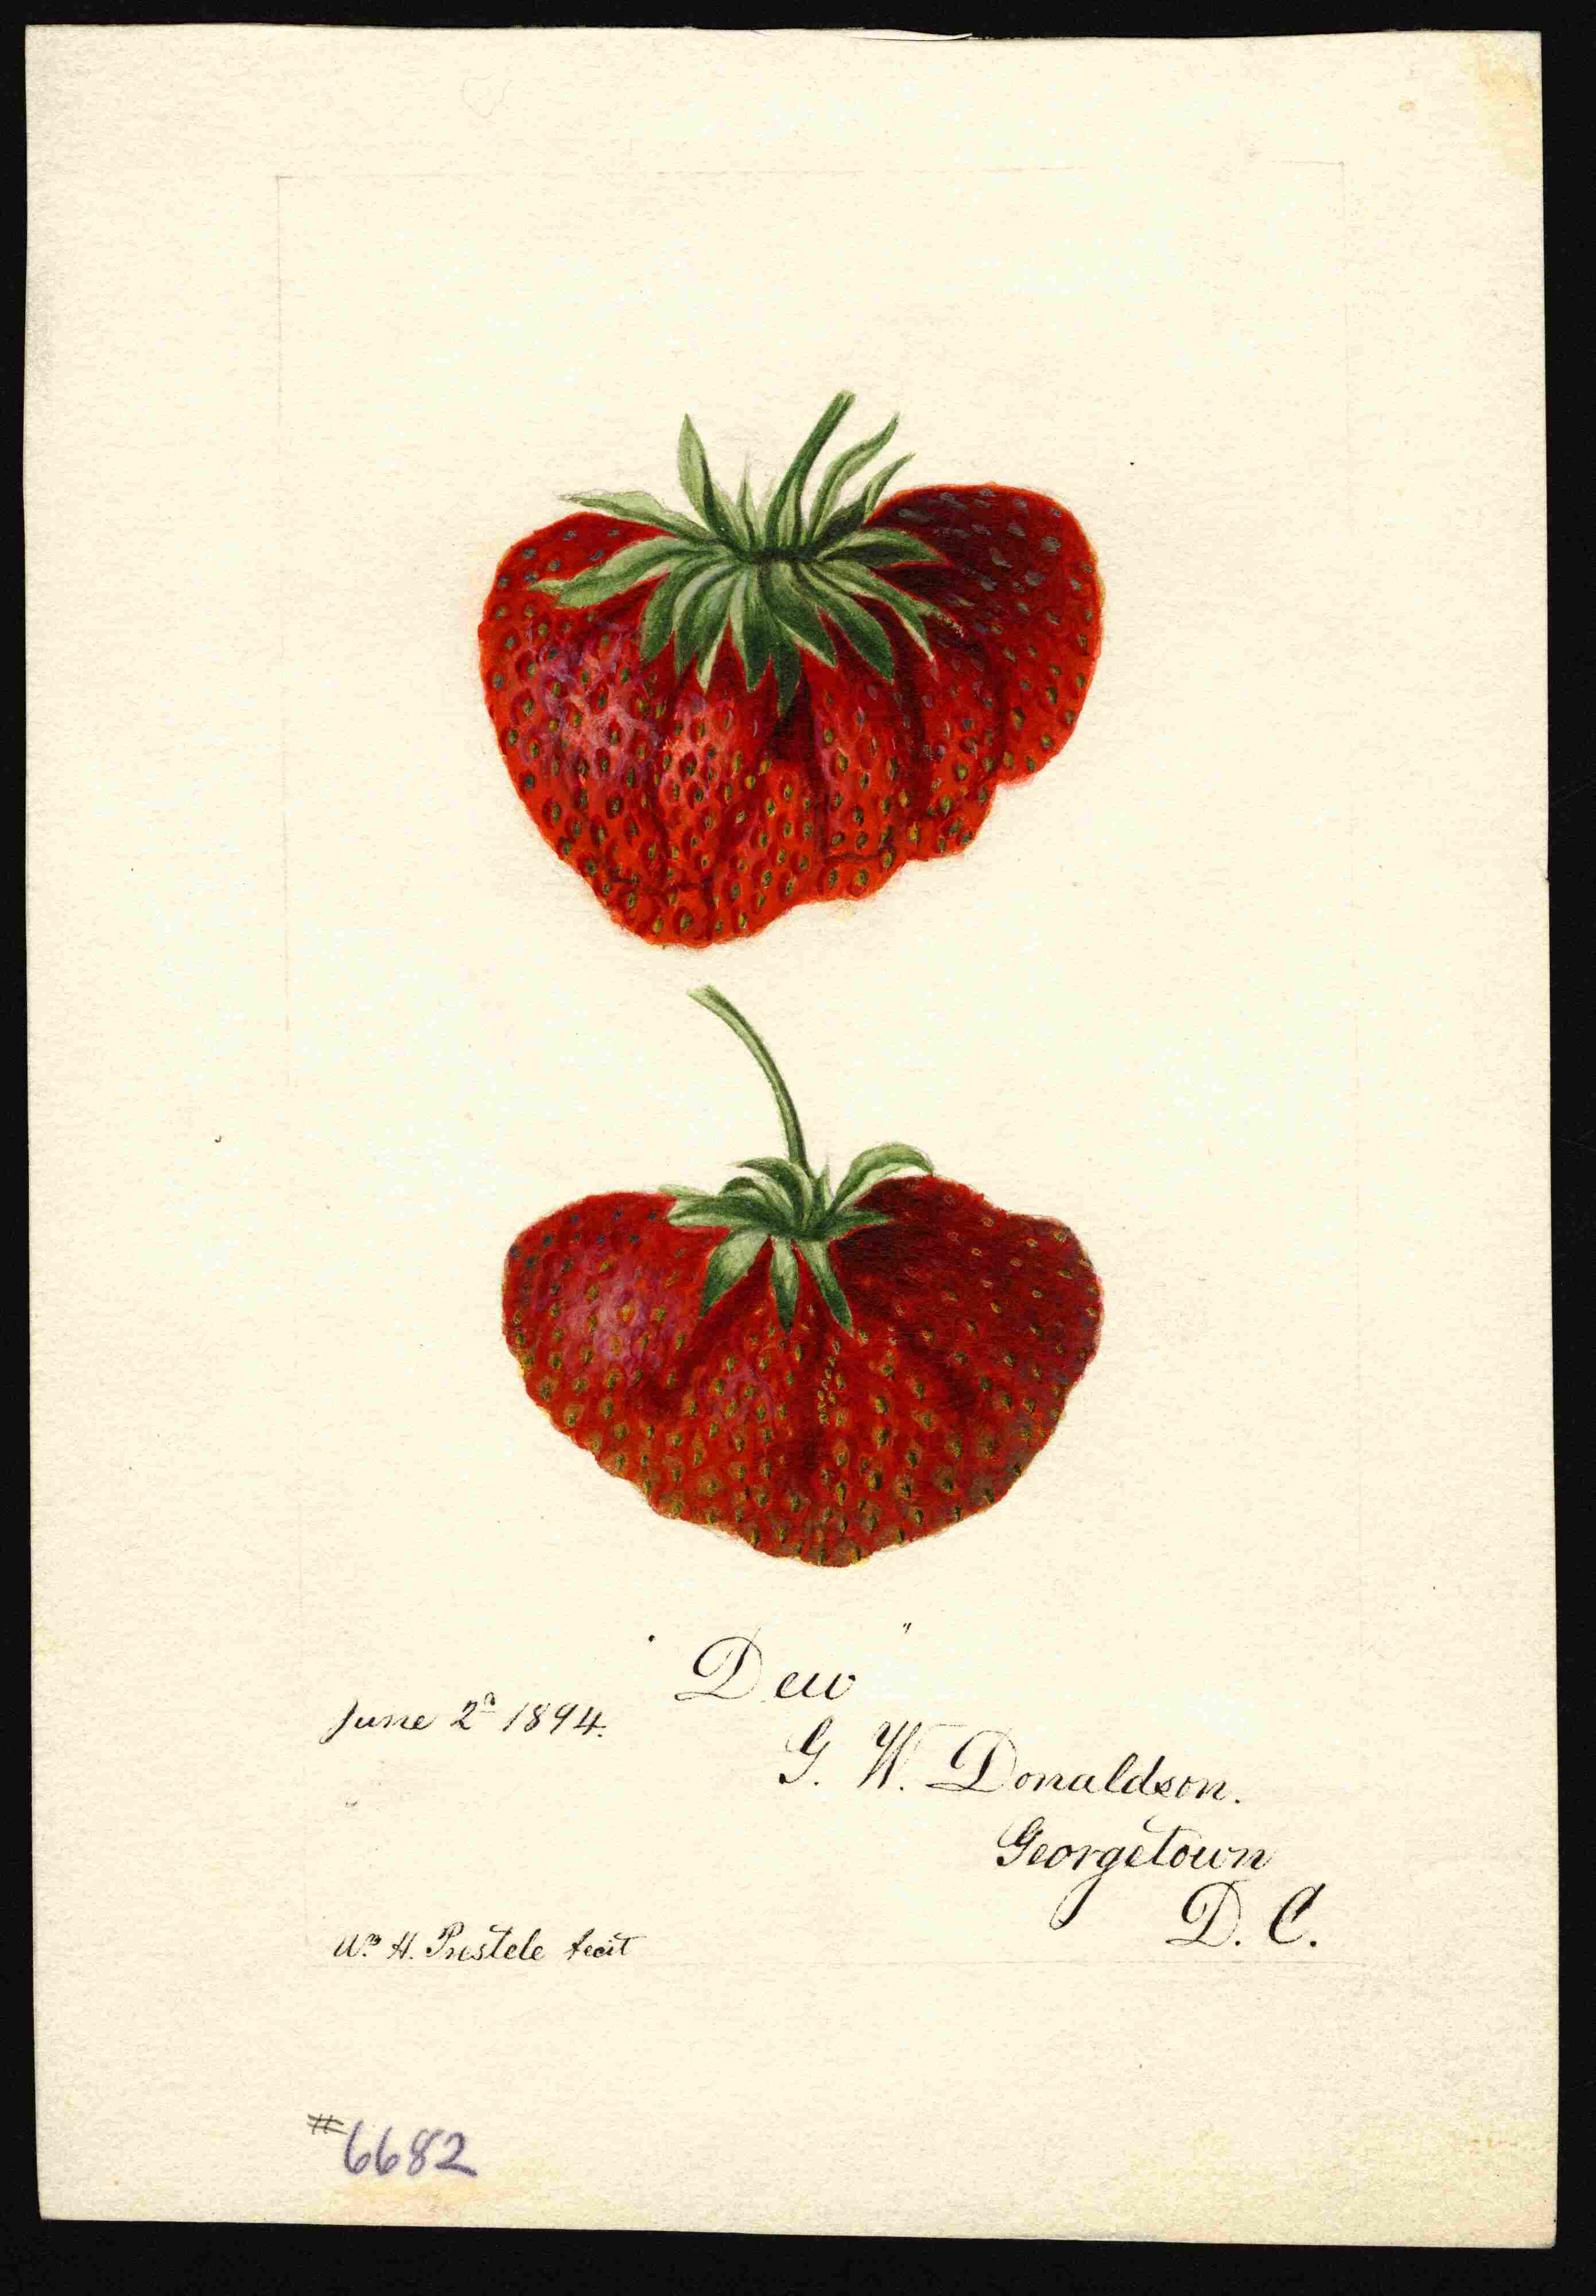 "Dew"
June 2d 1894.
G. W. Donaldson.
Georgetown
D. C.
Wm H. Prestele fecit
#6682